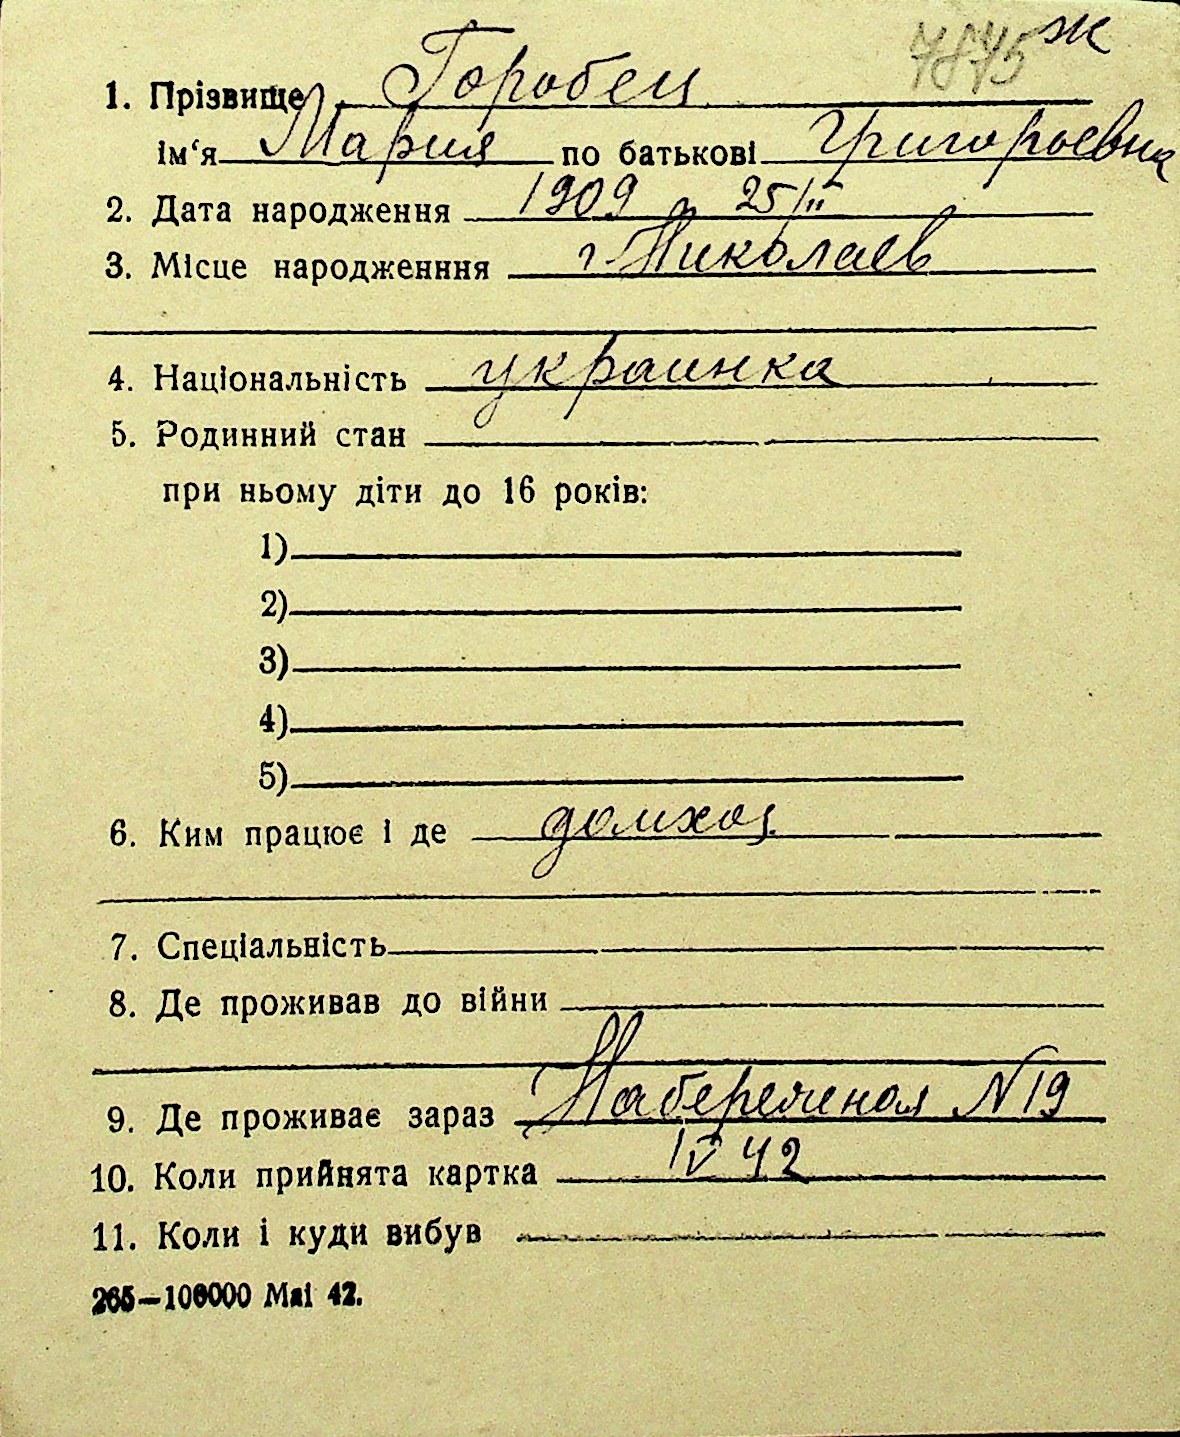 7875 ж
1. Прізвище Горобец
ім‘я Мария по батькові Григорьевна
2. Дата народження 1909 25/II
3. Місце народженння г Николаев
4. Національність украинка
5. Родинний стан
при ньому діти до 16 років:
1)
2)
3)
4)
5)
6. Ким працює і де домхоз.
7. Спеціальність
8. Де проживав до війни
9. Де проживає зараз Набережная N 19
10. Коли прийнята картка IV 42
11. Коли і куди вибув
265—100000 Mai 42.